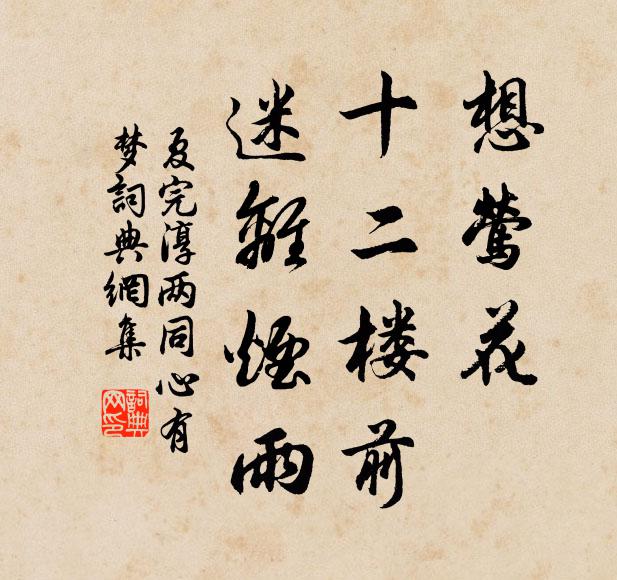 想莺花
十二楼前
迷離煙雨
夏完淳两同心有
梦詞典網集
詞典
网印